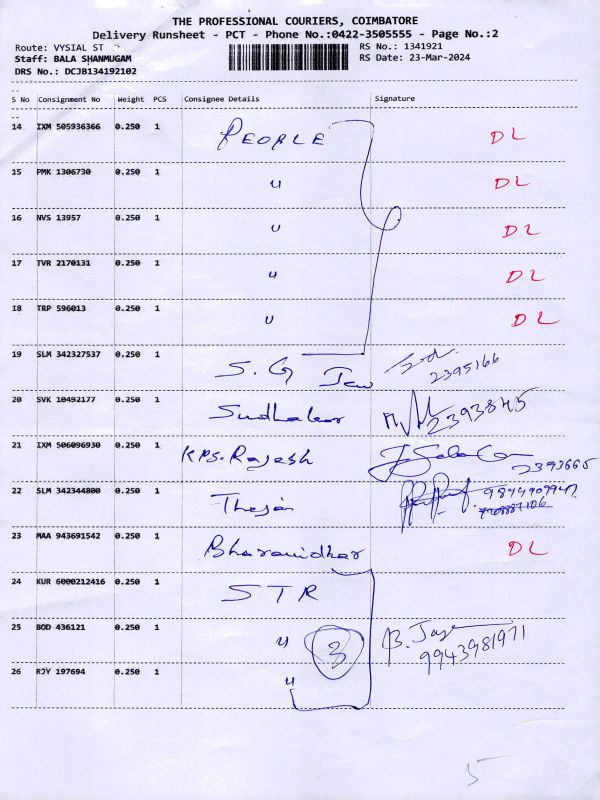 THE PROFESSIONAL COURIERS, COIMBATORE
Delivery Runsheet - PCT - Phone No.:0422-3505555 - Page No.:2
Route: VYSIAL ST
RS No.: 1341921
Staff: BALA SHANMUGAM
RS Date: 23-Mar-2024
DRS No.: DCJB134192102
S No Consignment No Weight PCS Consignee Details Signature
14 IXM 505936366 0.250 1 PEOPLE DL
15 PMK 1306730 0.250 1 " DL
16 NVS 13957 0.250 1 " DL
17 TVR 2170131 0.250 1 " DL
18 TRP 596013 0.250 1 " DL
19 SLM 342327537 0.250 1 S. G 2395166
20 SVK 10492177 0.250 1 Sudhakar 2393845
21 IXM 506096930 0.250 1 KPS. Rajesh 2393665
22 SLM 342344800 0.250 1
23 MAA 943691542 0.250 1 Bharanidhar DL
24 KUR 6000212416 0.250 1 STR
25 BOD 436121 0.250 1 " 3 9943981971
26 RJY 197694 0.250 1 "